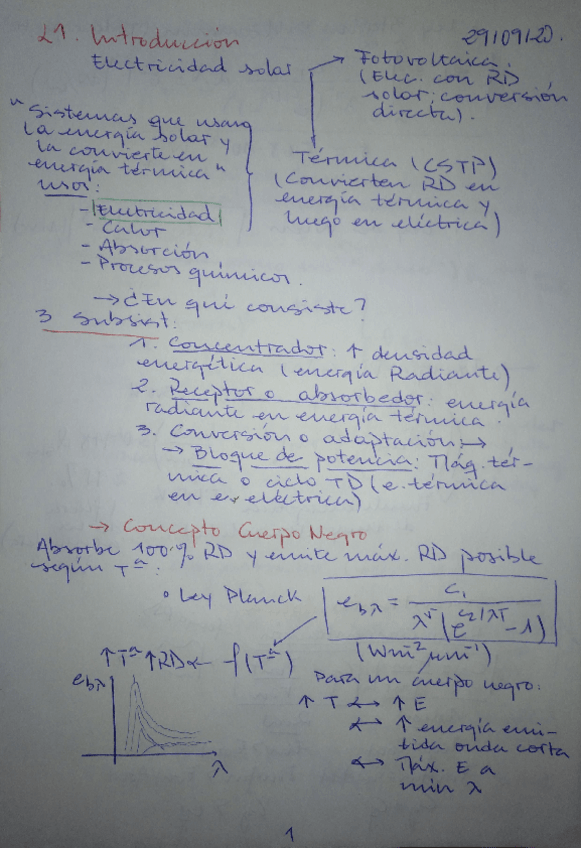 L1. Introducción
29/09/20.
Electricidad solar
Fotovoltaica.
(Elec. con RD
solar: conversión
directa).
"Sistemas que usan
la energía solar y
la convierte en
energía térmica"
Térmica (CSTP)
(Convierten RD en
energía térmica y
luego en eléctrica)
usos:
- Electricidad
- Calor
- Absorción
- Procesos químicos.
→ ¿En qué consiste?
3 subsist:
1. Concentrador: ↑ densidad
energética (energía Radiante)
2. Receptor o absorbedor: energía
radiante en energía térmica.
3. Conversión o adaptación: →
→ Bloque de potencia: Máq. tér-
mica o ciclo TD (e. térmica
en e. eléctrica)
→ Concepto Cuerpo Negro
Absorbe 100% RD y emite máx. RD posible
según Tª:
• Ley Planck
e_bλ = C₁ / λ⁵ (e^(C₂/λT) - 1)
(Wm⁻² μm⁻¹)
↑Tª ↑RD ← f(Tª)
e_bλ
λ
Para un cuerpo negro:
↑ T ↔ ↑ E
↔ ↑ energía emi-
tida onda corta
↔ Máx. E a
min λ
1